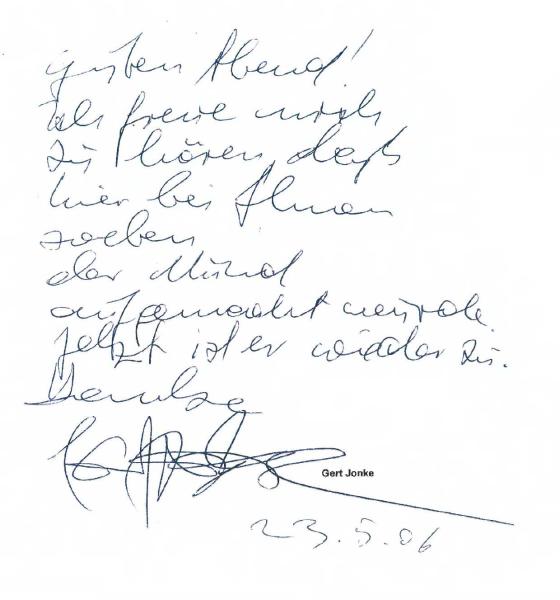 guten Abend!
Ich freue mich
zu hören, daß
hier bei Ihnen
soeben
der Mund
aufgemacht wurde.
Jetzt ist er wieder zu.
Danke
Gert Jonke
23.5.06